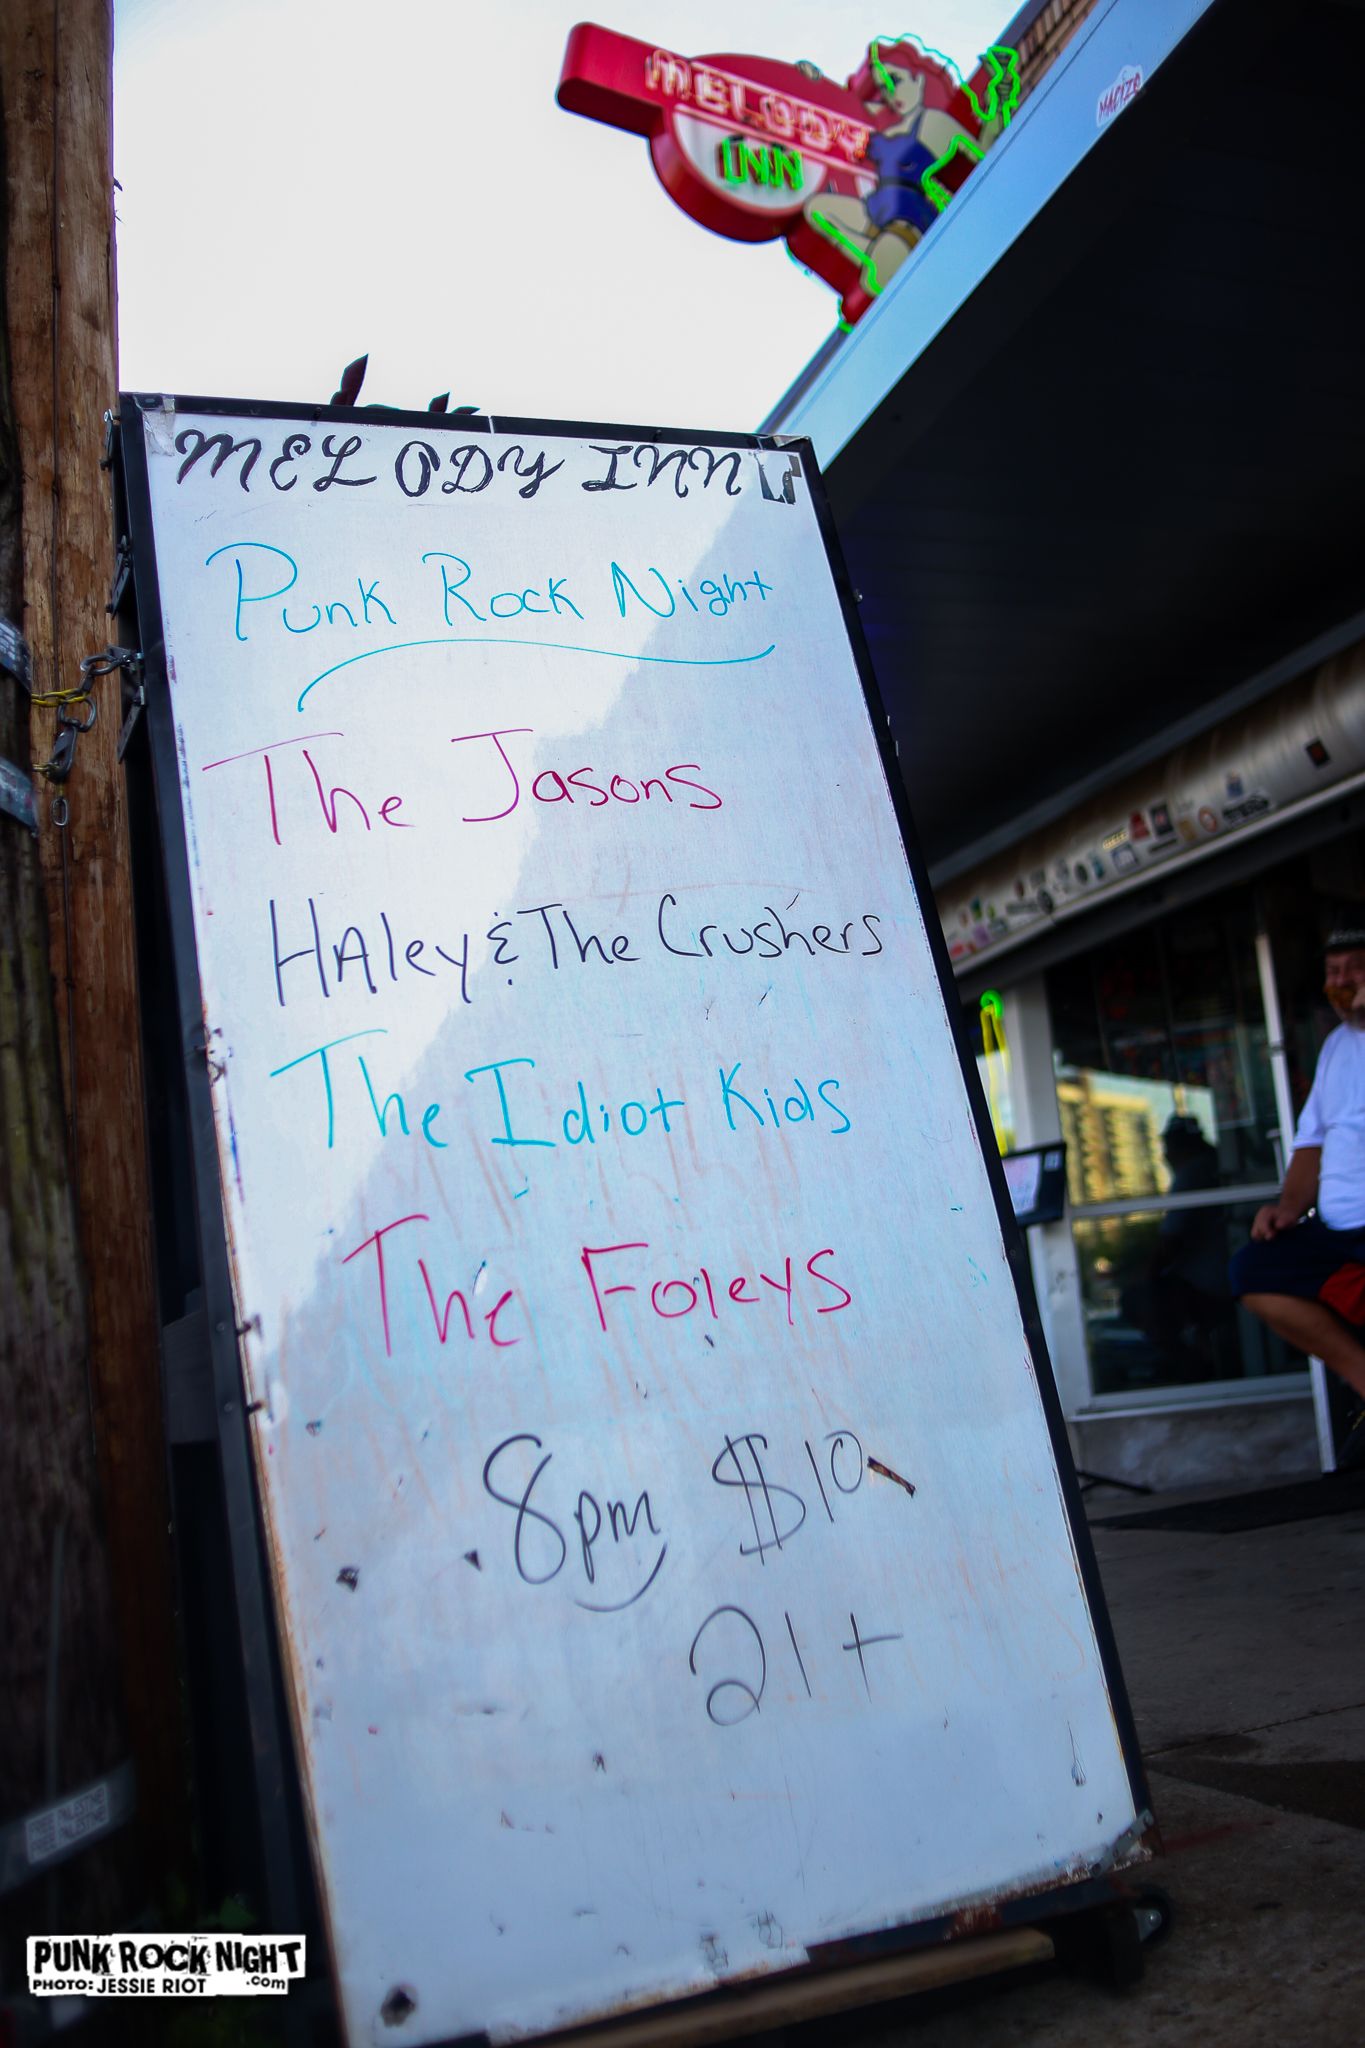 MELODY
INN
MELODY INN
Punk Rock Night
The Jasons
HAley & The Crushers
The Idiot Kids
The Foleys
8pm $10
21+
FREE PALESTINE
FREE PALESTINE
PUNK ROCK NIGHT
.com
PHOTO: JESSIE RIOT